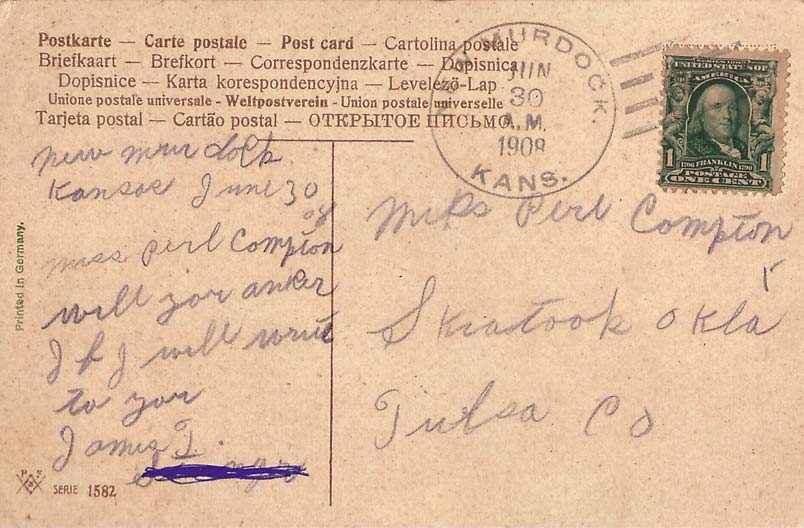 Postkarte — Carte postale — Post card — Cartolina postale
Briefkaart — Brefkort — Correspondenzkarte — Dopisnica
Dopisnice — Karta korespondencyjna — Levelezö-Lap
Unione postale universale - Weltpostverein - Union postale universelle
Tarjeta postal — Cartão postal — ОТКРЫТОЕ ПИСЬМО
MURDOCK.
JUN
30
A.M.
1908
KANS.
SERIES 1902
UNITED STATES OF
AMERICA
1 1706 FRANKLIN 1790 1
POSTAGE
ONE CENT
new murdock
Kansas June 30
08
miss perl Compton
will yor anser
If I will write
to yor
James T.
Miss Perl Compton
Skiatook Okla
Tulsa Co
Printed in Germany.
P F
SERIE 1582